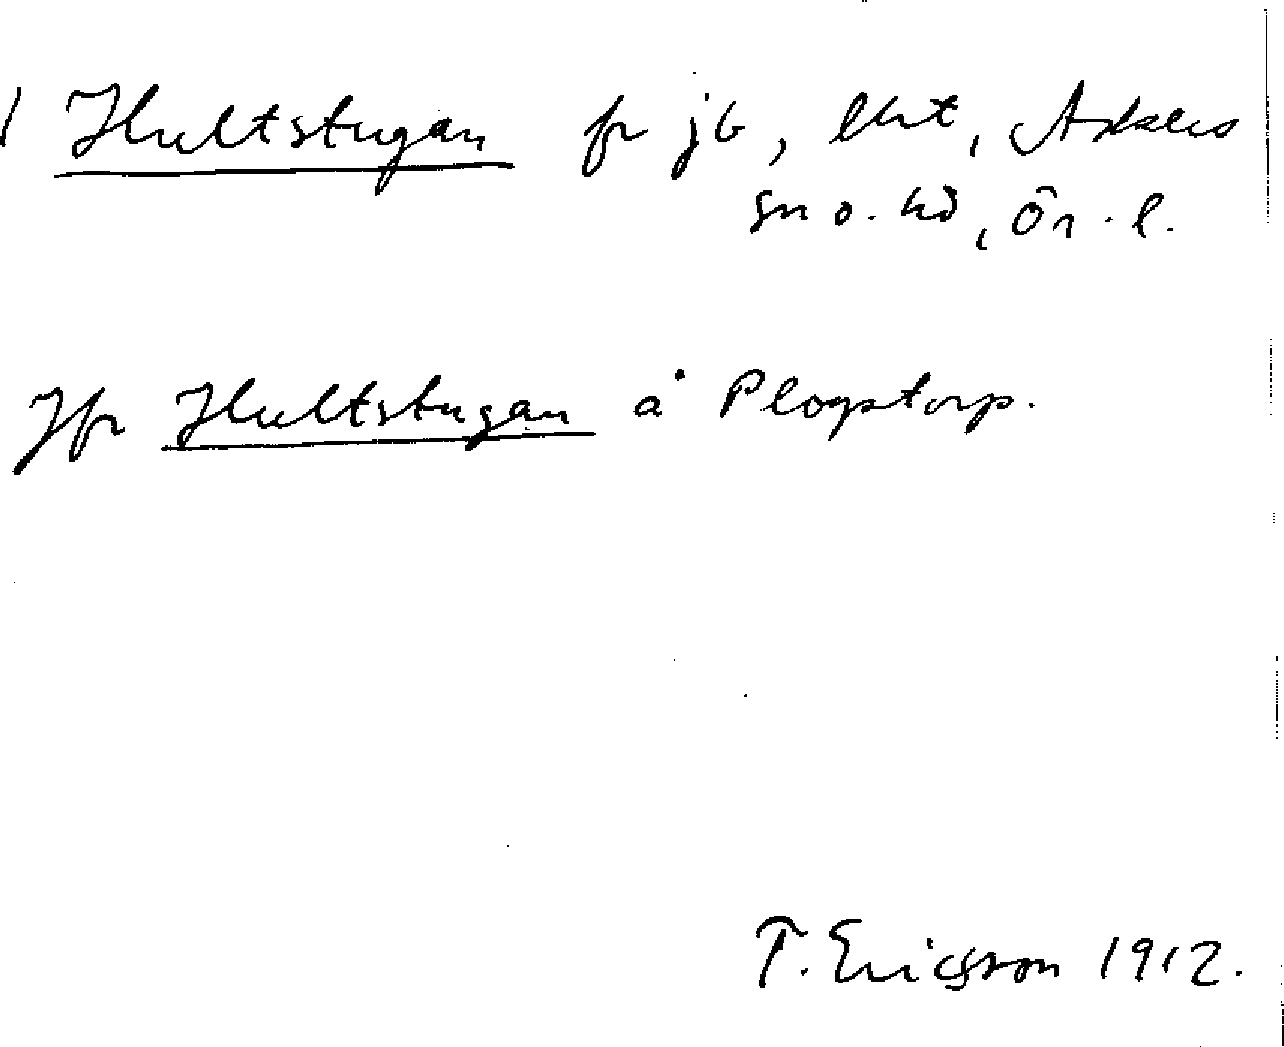 Hultstugan fr jb, lht, Askers
sn o. hd, Ör. l.
Jfr Hultstugan å Plogstorp.
T. Ericsson 1912.